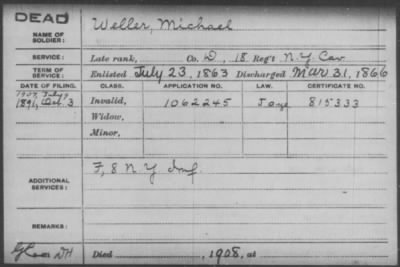 DEAD
NAME OF SOLDIER: Weller, Michael
SERVICE: Late rank, Co. D, 18 Reg't N.Y. Cav
TERM OF SERVICE: Enlisted July 23, 1863 Discharged Mar 31, 1866
DATE OF FILING. CLASS. APPLICATION NO. LAW. CERTIFICATE NO.
1907, July
1891, Oct. 3 Invalid, 1062245 815333
Widow,
Minor,
ADDITIONAL SERVICES: F, 8 N Y Inf
REMARKS:
Died 1908, at